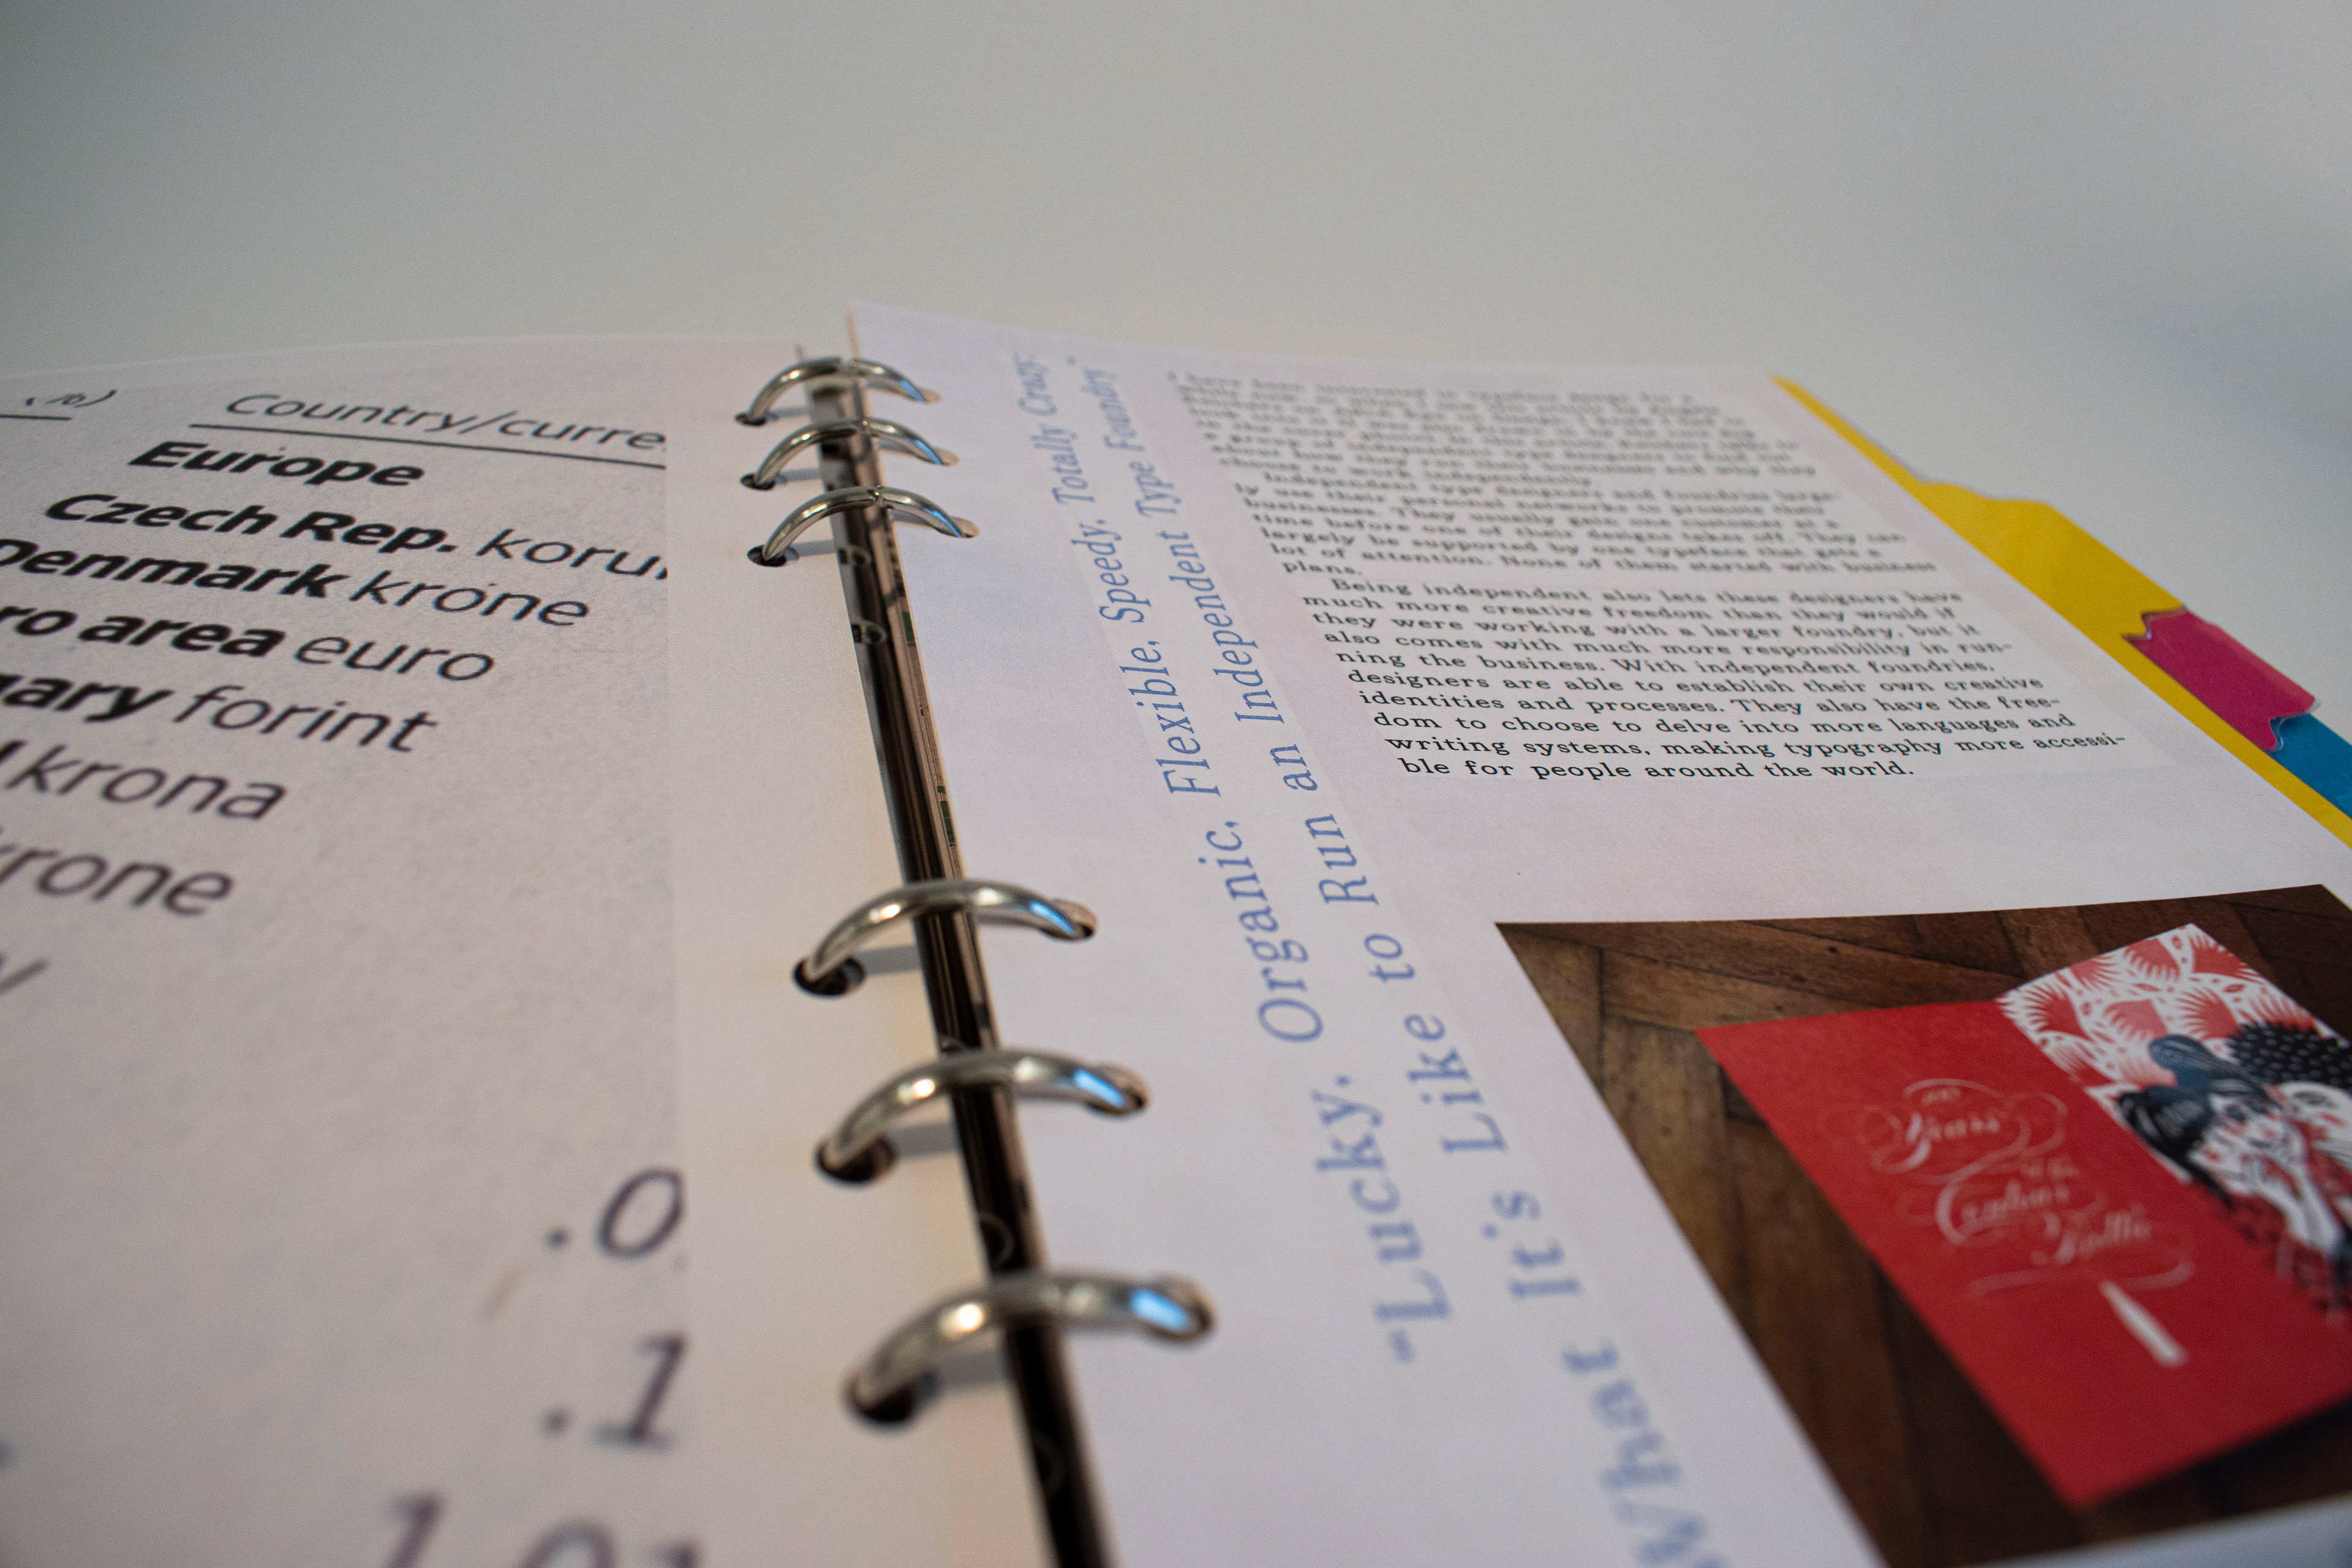 Country/curre
Europe
Czech Rep. koru
Denmark krone
ro area euro
gary forint
krona
rone
y
.0
.1
"Lucky. Organic. Flexible. Speedy. Totally Crazy:
What It's Like to Run an Independent Type Foundry"
have been interested in typeface design for a
a group of independent type designers to find out
about how they run their businesses and why they
choose to work independently.
Independent type designers and foundries large-
ly use their personal networks to promote their
businesses. They usually gain one customer at a
time before one of their designs takes off. They can
largely be supported by one typeface that gets a
lot of attention. None of them started with business
plans.
Being independent also lets these designers have
much more creative freedom than they would if
they were working with a larger foundry, but it
also comes with much more responsibility in run-
ning the business. With independent foundries,
designers are able to establish their own creative
identities and processes. They also have the free-
dom to choose to delve into more languages and
writing systems, making typography more accessi-
ble for people around the world.
Years